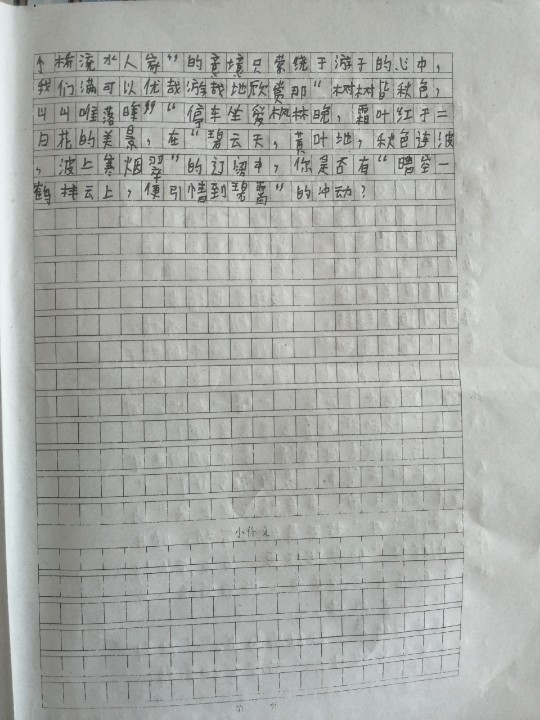 小桥流水人家”的意境只萦绕于游子的心中，
我们满可以优哉游哉地欣赏那“树树皆秋色，
山山唯落晖”“停车坐爱枫林晚，霜叶红于二
月花的美景，在“碧云天，黄叶地，秋色连波
，波上寒烟翠”的订留中，你是否有“晴空一
鹤排云上，便引情到碧霄”的冲动？
小作文
第